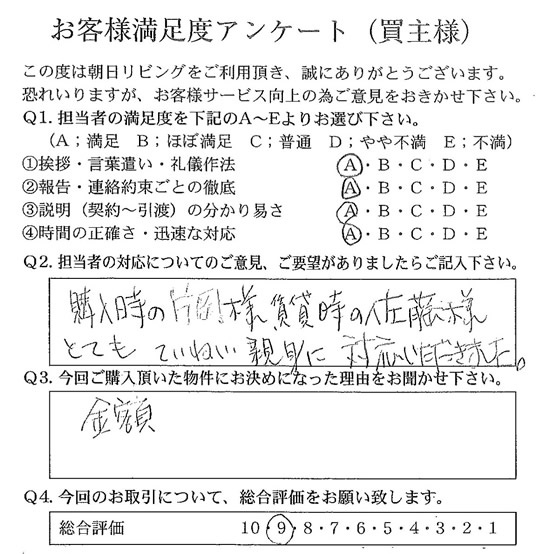 お客様満足度アンケート（買主様）
この度は朝日リビングをご利用頂き、誠にありがとうございます。
恐れいりますが、お客様サービス向上の為ご意見をおきかせ下さい。
Q1. 担当者の満足度を下記のA～Eよりお選び下さい。
（A；満足　B；ほぼ満足　C；普通　D；やや不満　E；不満）
①挨拶・言葉遣い・礼儀作法　A・B・C・D・E
②報告・連絡約束ごとの徹底　A・B・C・D・E
③説明（契約～引渡）の分かり易さ　A・B・C・D・E
④時間の正確さ・迅速な対応　A・B・C・D・E
Q2. 担当者の対応についてのご意見、ご要望がありましたらご記入下さい。
購入時の片岡様 賃貸時の佐藤様
とても ていねい 親身に 対応いただきました。
Q3. 今回ご購入頂いた物件にお決めになった理由をお聞かせ下さい。
金額
Q4. 今回のお取引について、総合評価をお願い致します。
総合評価　10・9・8・7・6・5・4・3・2・1